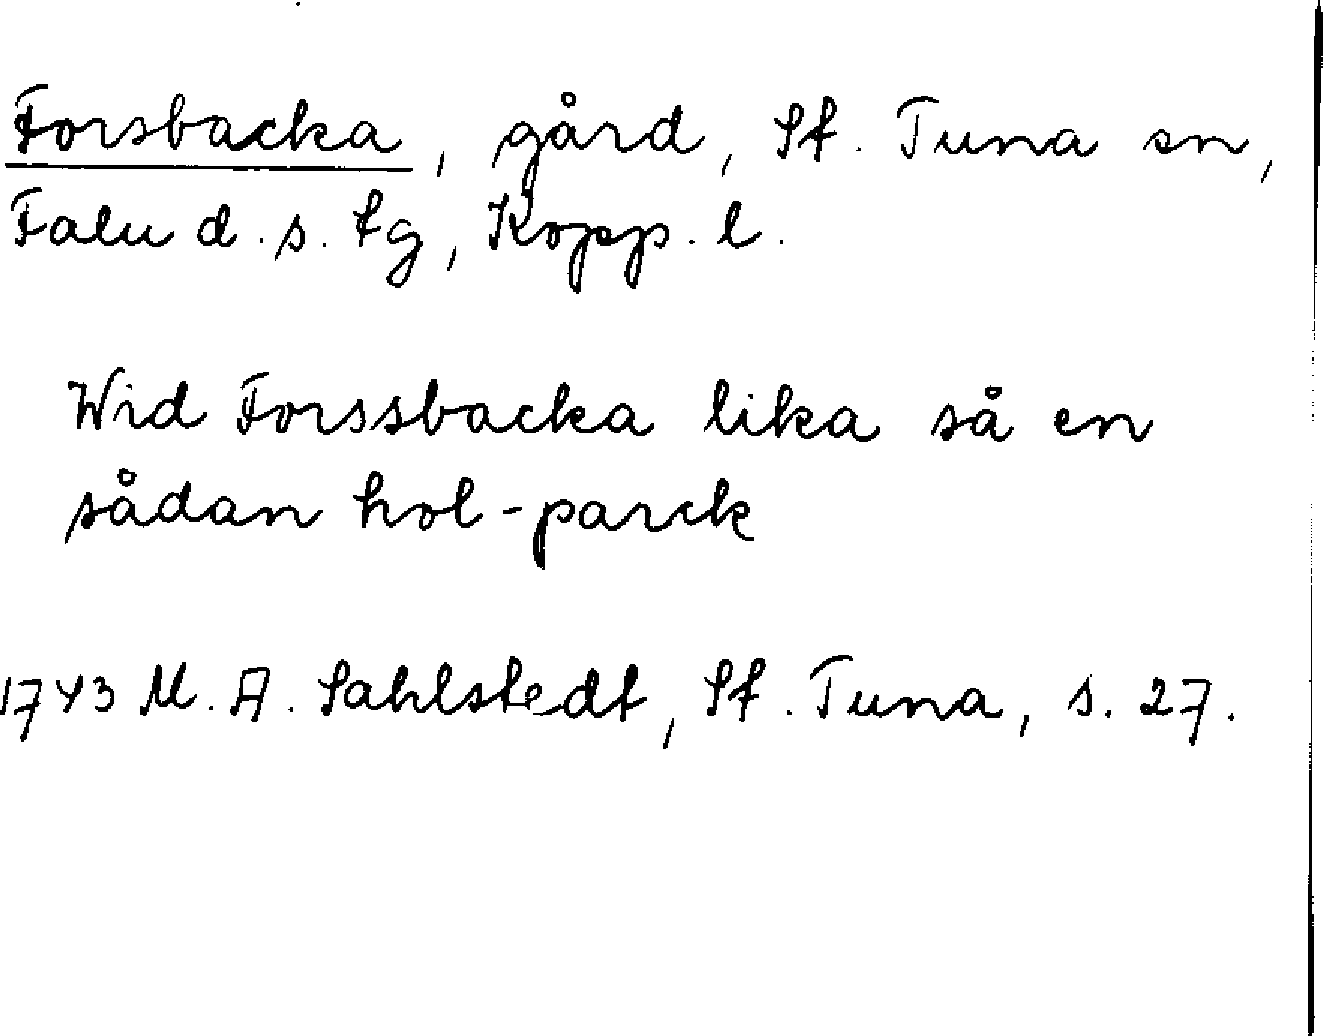 Forsbacka, gård, St. Tuna sn,
Falu d. s. tg, Kopp. l.
Wid Forssbacka lika så en
sådan hol-parck
1743 M. A. Sahlstedt, St. Tuna, s. 27.